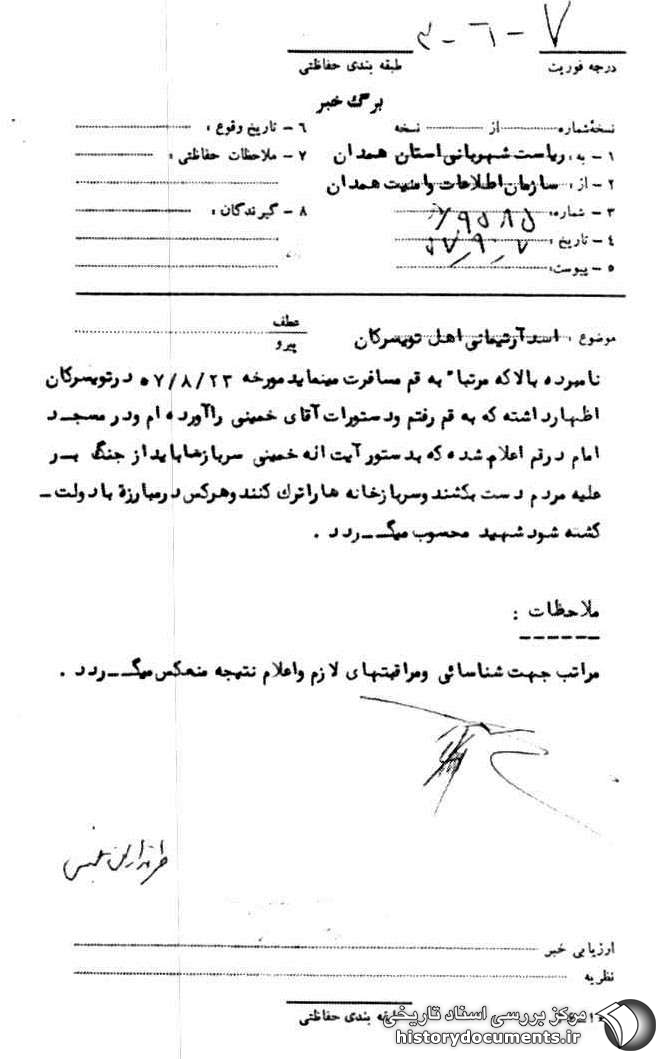 ۷ - ٦ - ۳
درجه فوریت
طبقه بندی حفاظتی
برگ خبر
نسخهٔ شماره ............ از ............ نسخه
۱ - به : ریاست شهربانی استان همدان
۲ - از : سازمان اطلاعات وامنیت همدان
۳ - شماره:
۴ - تاریخ :
۵ - پیوست:
۶ - تاریخ وقوع :
۷ - ملاحظات حفاظتی :
۸ - گیرندگان :
موضوع : اسد آرتیمانی اهل تویسرکان
عطف
پیرو
نامبرده بالا که مرتبا" به قم مسافرت مینماید مورخه ۵۷/۸/۲۳ درتویسرکان
اظهارداشته که به قم رفتم ودستورات آقای خمینی راآورده ام ودر مسجد
امام درقم اعلام شده که بدستور آیت اله خمینی سربازهاباید از جنگ بر
علیه مردم دست بکشند وسربازخانه هاراترك کنند وهرکس درمبارزه بادولت ـ
کشته شود شهید محسوب میگـردد .
ملاحظات :
مراتب جهت شناسائی ومراقبتهای لازم واعلام نتیجه منعکس میگـردد .
ارزیابی خبر
نظریه
طبقه بندی حفاظتی
مرکز بررسی اسناد تاریخی
historydocuments.ir